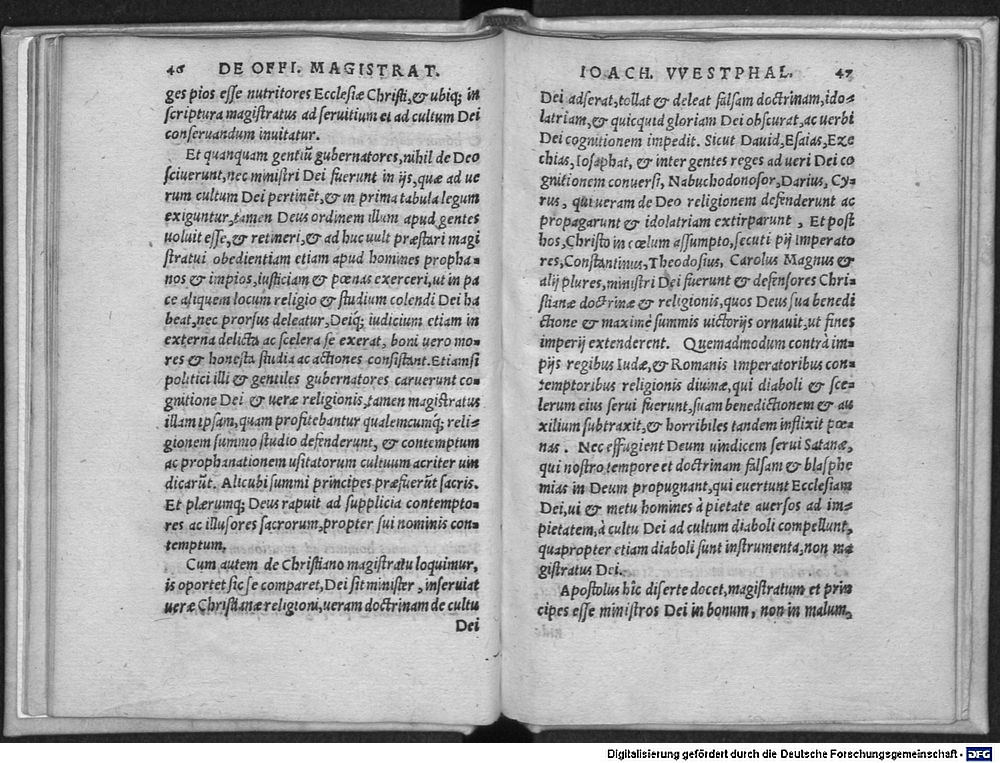 46 DE OFFI. MAGISTRAT.
ges pios esse nutritores Ecclesiæ Christi, & ubiq; in
scriptura magistratus ad seruitium et ad cultum Dei
conseruandum inuitatur.
Et quanquam gentiū gubernatores, nihil de Deo
sciuerunt, nec ministri Dei fuerunt in ijs, quæ ad ue
rum cultum Dei pertinēt, & in prima tabula legum
exiguntur, tamen Deus ordinem illum apud gentes
uoluit esse, & retineri, & ad huc uult præstari magi
stratui obedientiam etiam apud homines propha-
nos & impios, iusticiam & pœnas exerceri, ut in pa
ce aliquem locum religio & studium colendi Dei ha
beat, nec prorsus deleatur, Deiq; iudicium etiam in
externa delicta ac scelera se exerat, boni uero mo-
res & honesta studia ac actiones consistant. Etiamsi
politici illi & gentiles gubernatores caruerunt co-
gnitione Dei & ueræ religionis, tamen magistratus
illam ipsam, quam profitebantur qualemcumq; reli-
gionem summo studio defenderunt, & contemptum
ac prophanationem usitatorum cultuum acriter uin
dicarūt. Alicubi summi principes præfuerūt sacris.
Et plærumq; Deus rapuit ad supplicia contempto-
res ac illusores sacrorum, propter sui nominis con-
temptum.
Cum autem de Christiano magistratu loquimur,
is oportet sic se comparet, Dei sit minister, inseruiat
ueræ Christianæ religioni, ueram doctrinam de cultu
Dei
IOACH. VVESTPHAL. 47
Dei adserat, tollat & deleat falsam doctrinam, ido-
latriam, & quicquid gloriam Dei obscurat, ac uerbi
Dei cognitionem impedit. Sicut Dauid, Esaias, Eze
chias, Iosaphat, & inter gentes reges ad ueri Dei co
gnitionem conuersi, Nabuchodonosor, Darius, Cy-
rus, qui ueram de Deo religionem defenderunt ac
propagarunt & idolatriam extirparunt, Et post
hos, Christo in cœlum assumpto, secuti pij imperato
res, Constantinus, Theodosius, Carolus Magnus &
alij plures, ministri Dei fuerunt & defensores Chri-
stianæ doctrinæ & religionis, quos Deus sua benedi
ctione & maximè summis uictorijs ornauit, ut fines
imperij extenderent. Quemadmodum contrà im-
pijs regibus Iudæ, & Romanis imperatoribus con-
temptoribus religionis diuinæ, qui diaboli & sce-
lerum eius serui fuerunt, suam benedictionem & au
xilium subtraxit, & horribiles tandem inflixit pœ-
nas. Nec effugient Deum uindicem serui Satanæ,
qui nostro tempore et doctrinam falsam & blasphe
mias in Deum propugnant, qui euertunt Ecclesiam
Dei, ui & metu homines à pietate auersos ad im-
pietatem, à cultu Dei ad cultum diaboli compellunt,
quapropter etiam diaboli sunt instrumenta, non ma
gistratus Dei.
Apostolus hîc diserte docet, magistratum et prin
cipes esse ministros Dei in bonum, non in malum,
Digitalisierung gefördert durch die Deutsche Forschungsgemeinschaft - DFG